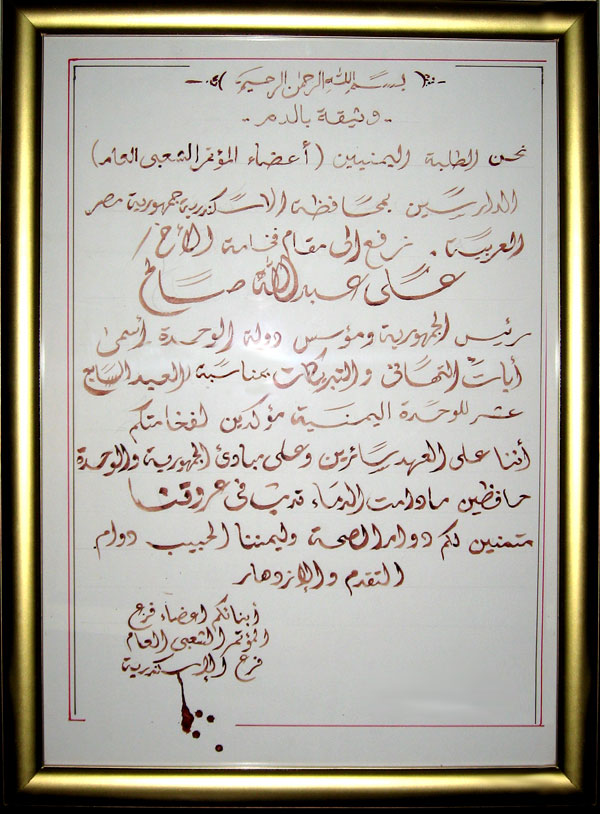 بسم الله الرحمن الرحيم
- وثيقة بالدم -
نحن الطلبة اليمنيين (أعضاء المؤتمر الشعبي العام)
الدارسين بمحافظة الاسكندرية جمهورية مصر
العربية . نرفع الى مقام فخامة الأخ /
علي عبدالله صالح
رئيس الجمهورية ومؤسس دولة الوحدة أسمى
أيات التهاني والتبريكات بمناسبة العيد السابع
عشر للوحدة اليمنية مؤكدين لفخامتكم
أننا على العهد سائرين وعلى مبادئ الجمهورية والوحدة
حافظين مادامت الدماء تدب في عروقنا
متمنين لكم دوام الصحة وليمننا الحبيب دوام
التقدم والإزدهار
أبنائكم اعضاء فرع
المؤتمر الشعبي العام
فرع الإسكندرية